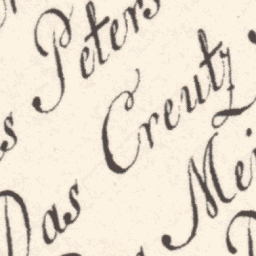 s Peters
Das Creutz
Mei